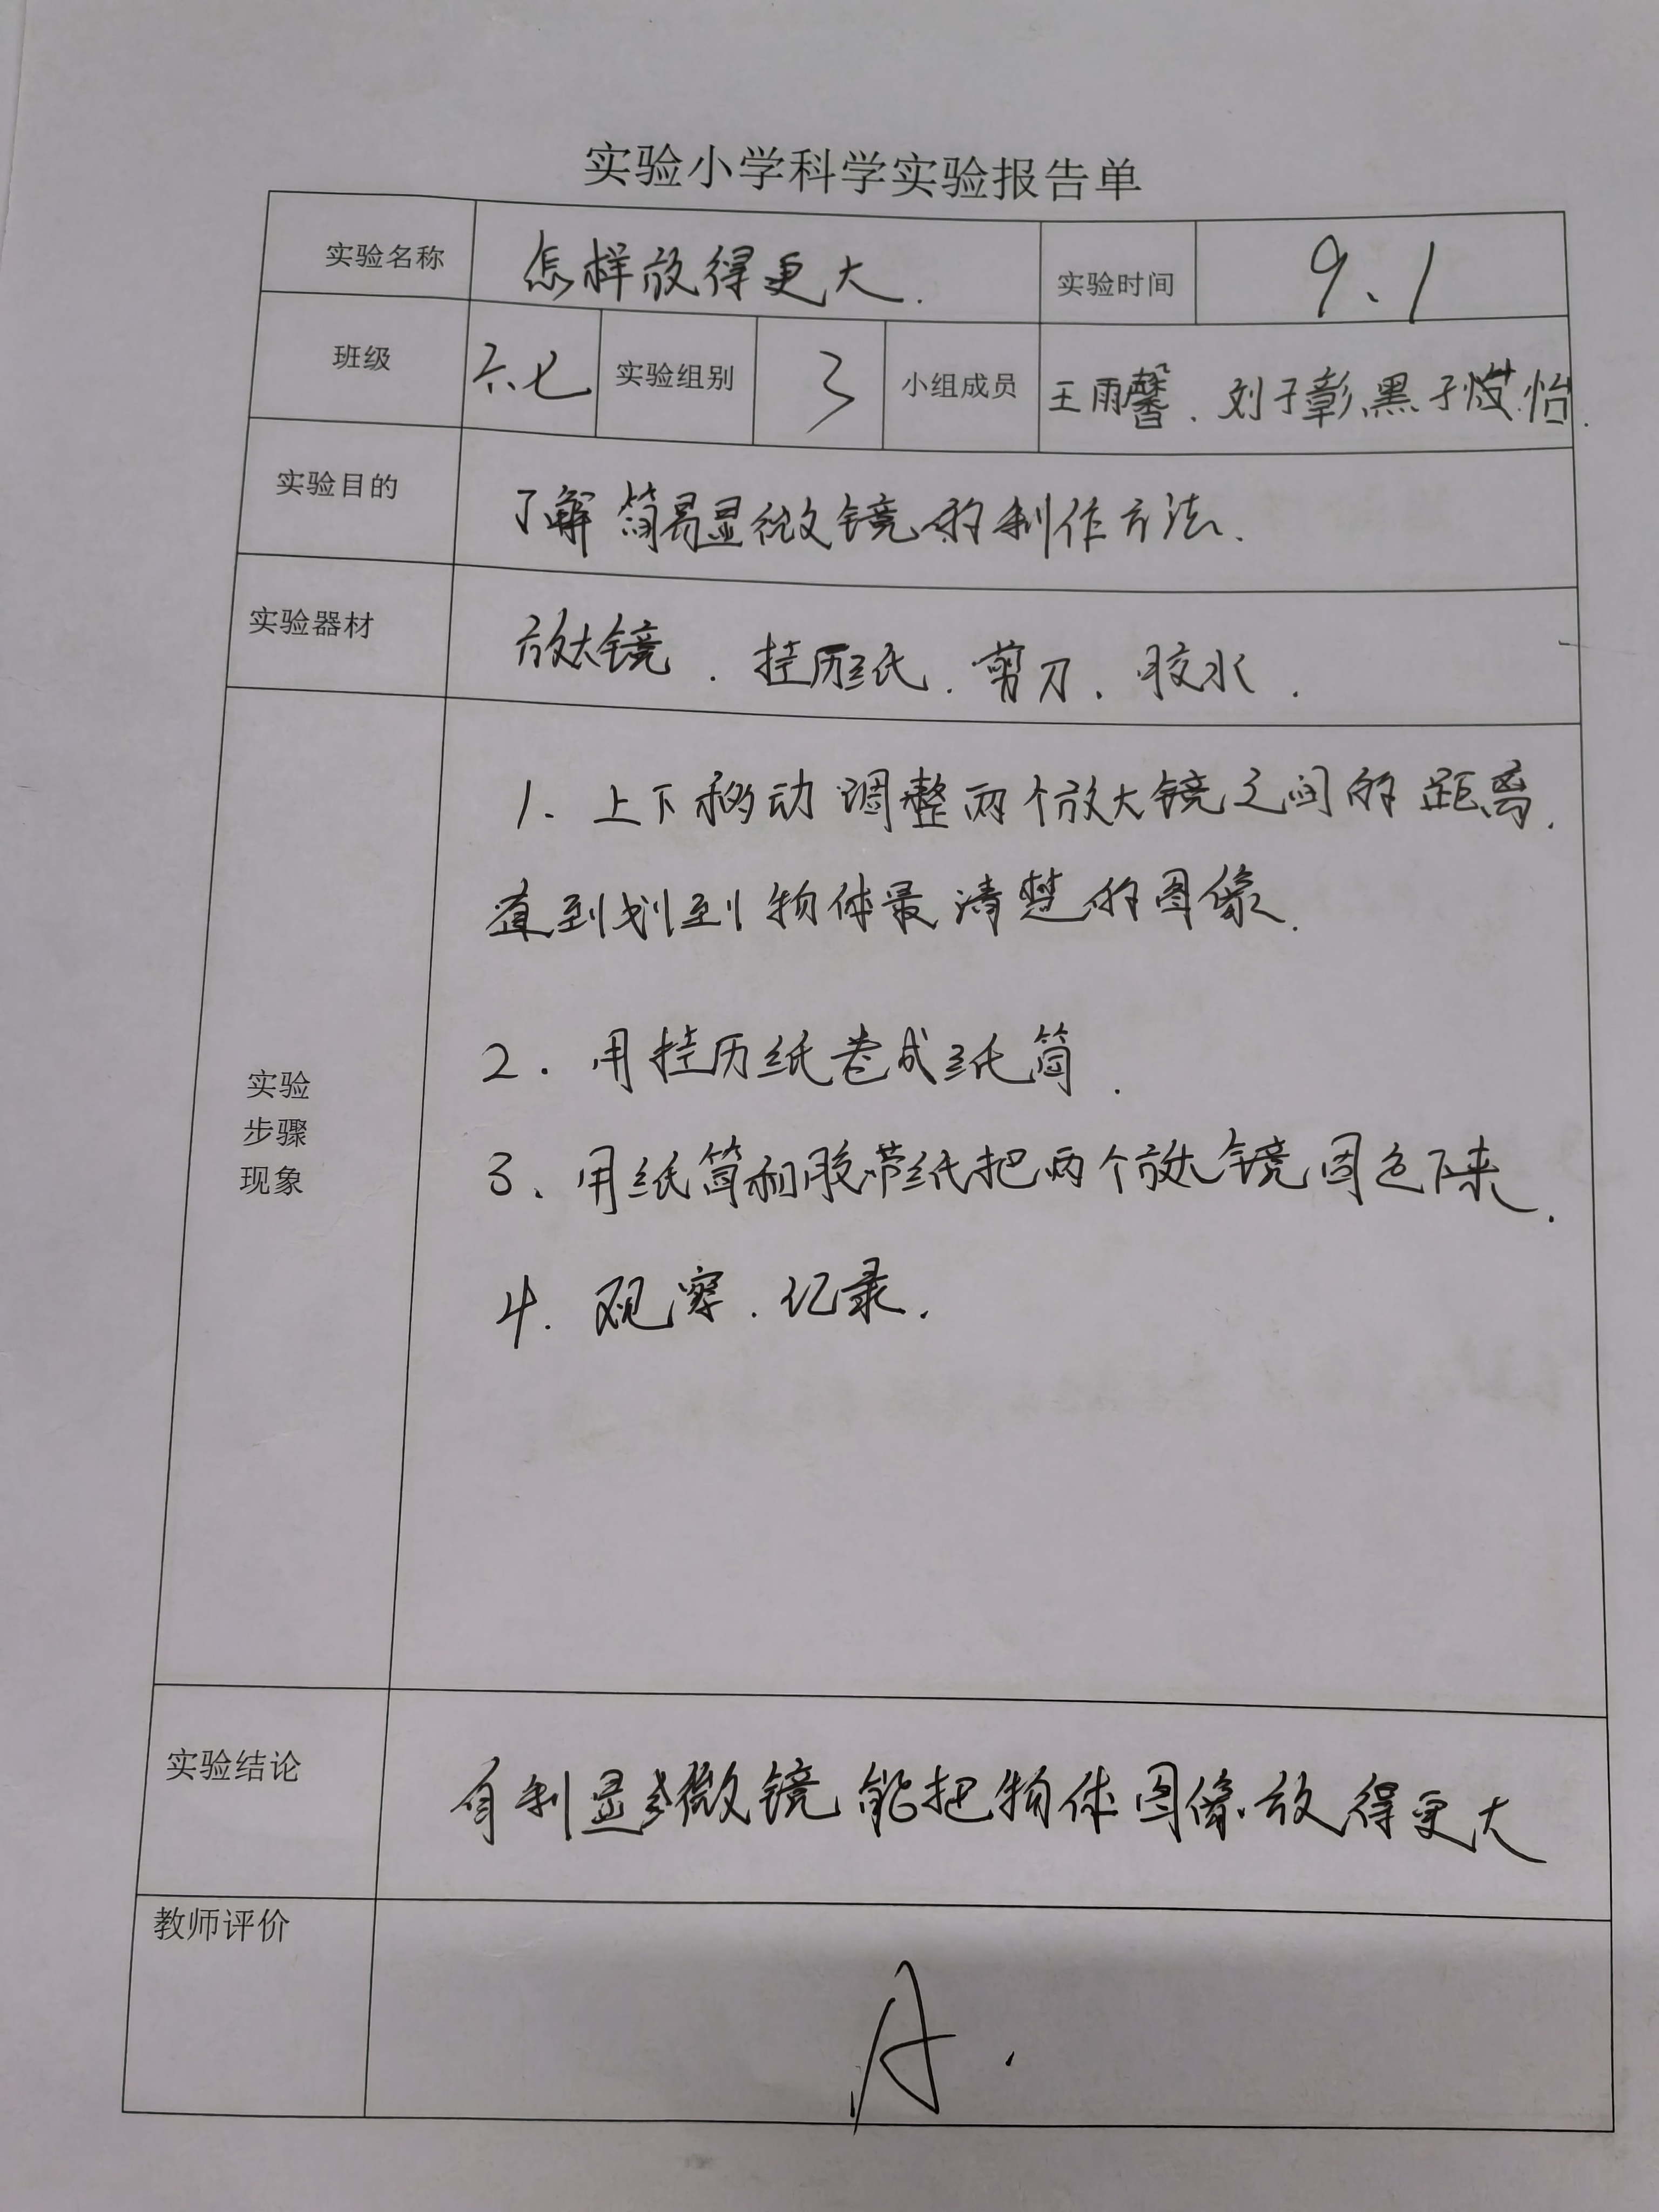 实验小学科学实验报告单
实验名称 怎样放得更大. 实验时间 9.1
班级 六.七 实验组别 3 小组成员 王雨馨.刘子彰.黑子怡.
实验目的 了解简易显微镜的制作方法.
实验器材 放大镜.挂历纸.剪刀.胶水.
实验
步骤
现象
1.上下移动调整两个放大镜之间的距离.
直到划到物体最清楚的图像.
2.用挂历纸卷成纸筒.
3、用纸筒和胶带纸把两个放大镜固定下来.
4.观察.记录.
实验结论 自制显微镜能把物体图像放得更大
教师评价
A.